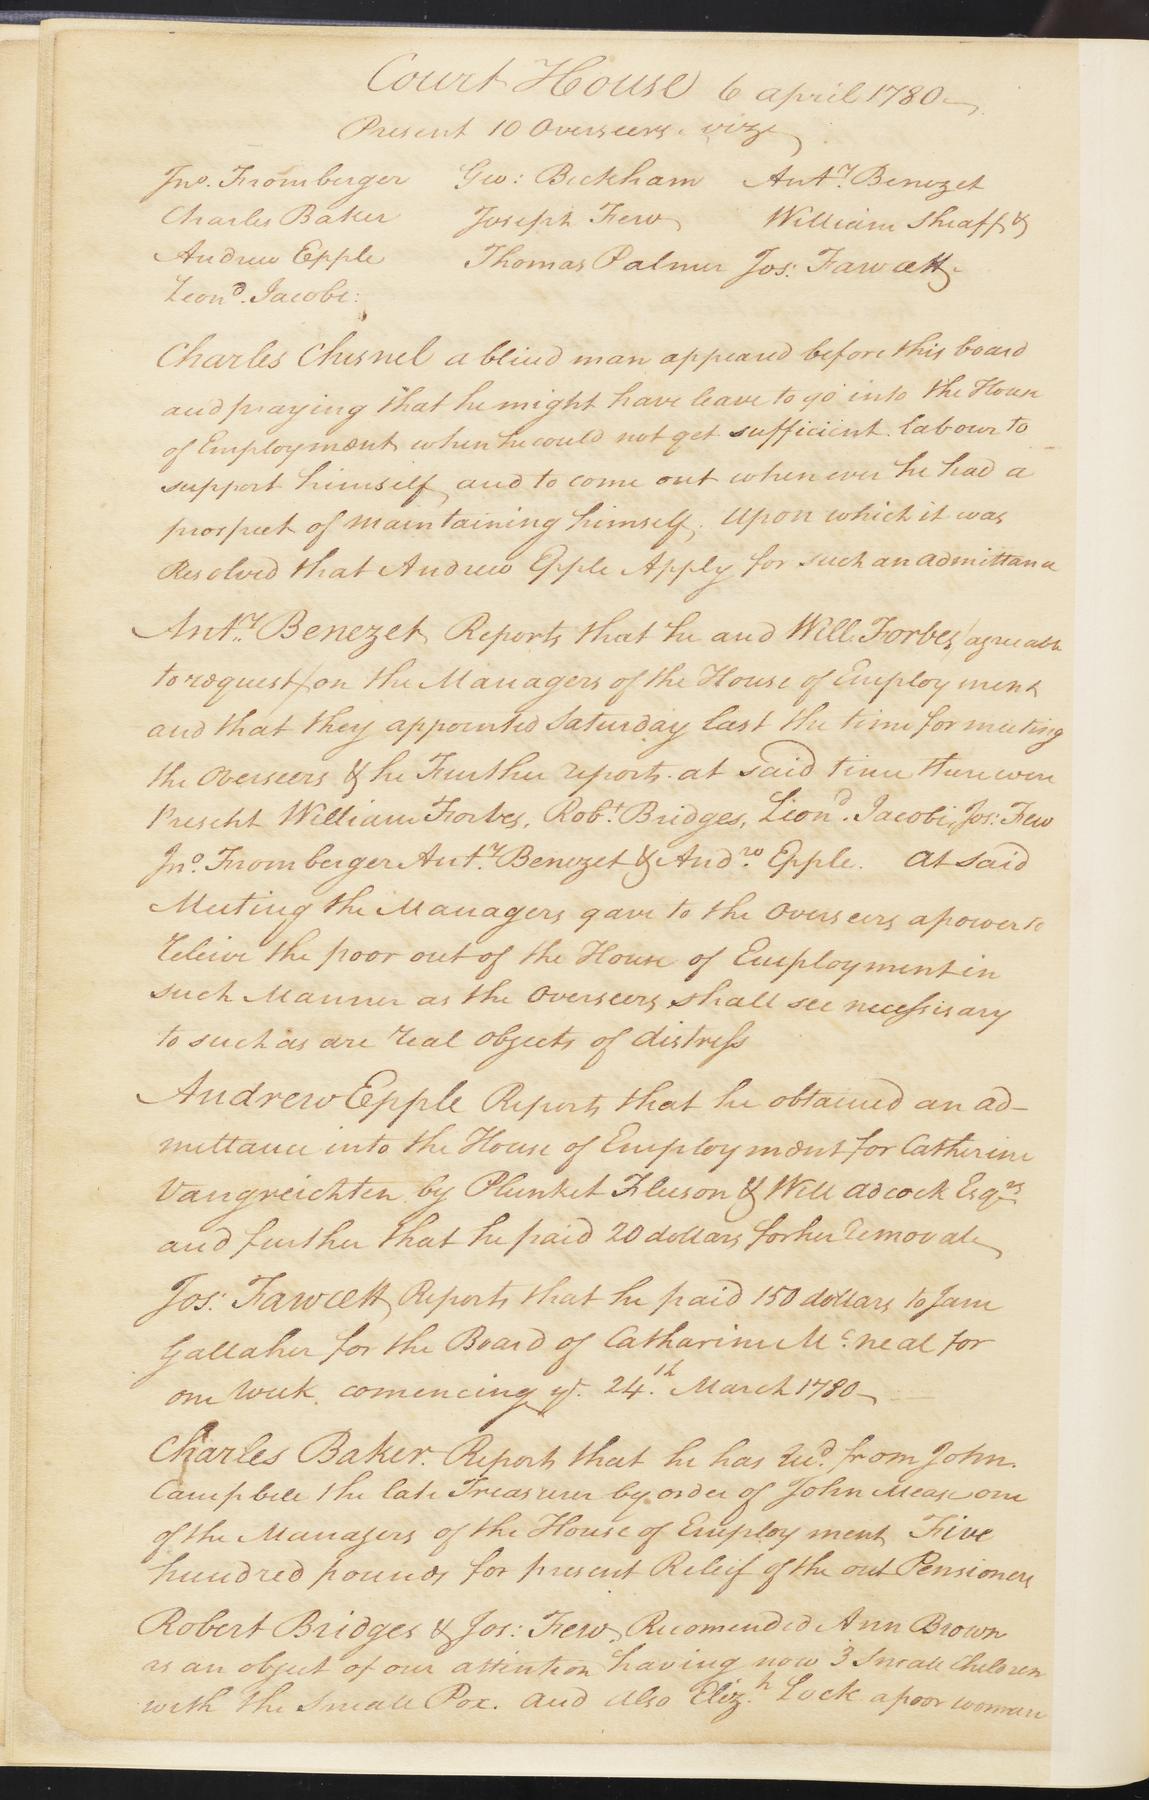 Court House 6 april 1780
Present 10 Overseers vizt
Jno. Fromberger Geo: Beckham Anty. Benezet
Charles Baker Joseph Few William Sheaff &
Andrew Epple Thomas Palmer Jos: Fawcett
Leond. Jacobi:
Charles Chisnel a blind man appeared before this board
and praying that he might have leave to go into the House
of Employment when he could not get sufficient labour to
support himself and to come out when ever he had a
prospect of maintaining himself, Upon which it was
Resolved that Andrew Epple Apply for such an admittance
Anty. Benezet Reports that he and Will. Forbes (agreeable
to request) on the Managers of the House of Employment
and that they appointed Saturday last the time for meeting
the Overseers & he Further reports at said time there were
Present William Forbes, Robt. Bridges, Leond. Jacobi, Jos: Few
Jno. Fromberger Anty. Benezet & Andrw. Epple. At said
Meeting the Managers gave to the Overseers a power to
releive the poor out of the House of Employment in
such Manner as the Overseers shall see necessisary
to such as are real objects of distress
Andrew Epple Reports that he obtained an ad-
mittance into the House of Employment for Catherine
Vangreichten by Plunket Fleeson & Will adcock Esqrs
and further that he paid 20 dollars for her removal
Jos: Fawcett Reports that he paid 150 dollars to Jane
Gallaher for the Board of Catharine Mc.neal for
one Week comencing ye. 24.th March 1780
Charles Baker. Reports that he has Recd. from John
Campbell the late Treasurer by order of John Mease one
of the Managers of the House of Employment Five
hundred pounds for present Releif of the out Pensioners
Robert Bridges & Jos: Few, Recomended Ann Brown
as an object of our attention having now 3 Small Children
with the Small Pox. and also Eliz.h Lock a poor woman